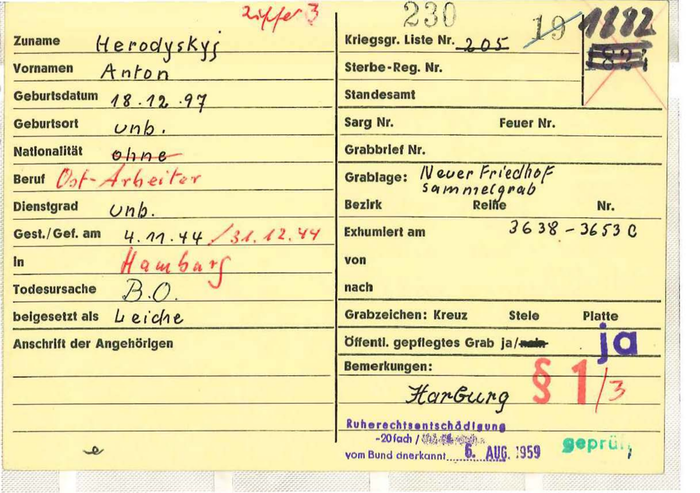 Ziffer 3
Zuname Herodyskyj
Vornamen Anton
Geburtsdatum 18.12.97
Geburtsort unb.
Nationalität ohne
Beruf Ost-Arbeiter
Dienstgrad unb.
Gest./Gef. am 4.11.44 / 31.12.44
In Hamburg
Todesursache B.O.
beigesetzt als Leiche
Anschrift der Angehörigen
e
230 19 1882
Kriegsgr. Liste Nr. 205
Sterbe-Reg. Nr.
Standesamt
Sarg Nr. Feuer Nr.
Grabbrief Nr.
Grablage: Neuer Friedhof
Sammelgrab
Bezirk Reihe Nr.
Exhumiert am 3638-3653 C
von
nach
Grabzeichen: Kreuz Stele Platte
Öffentl. gepflegtes Grab ja/nein ja
Bemerkungen: § 1/3
Harburg
Ruherechtsentschädigung
-20fach /
vom Bund anerkannt 6. AUG. 1959
geprüft